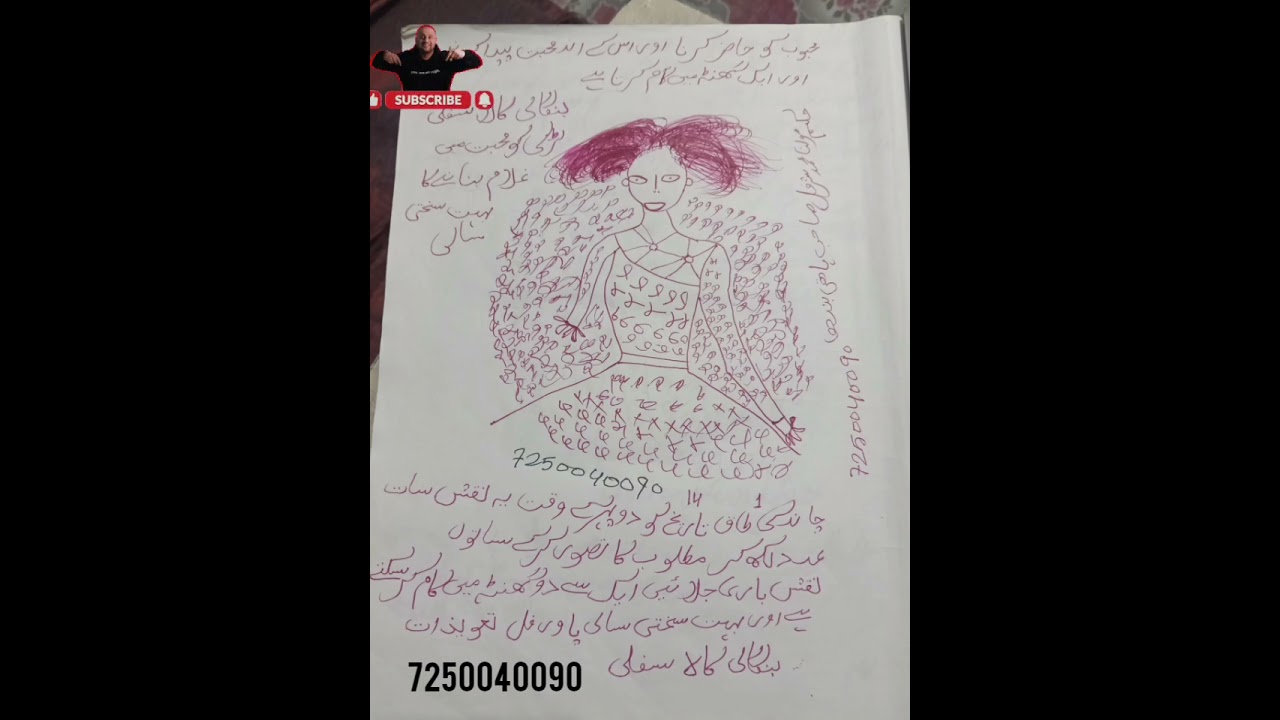 محبوب کو حاضر کرنا اور اس کے اندر محبت پیدا کرنا
اور ایک گھنٹہ میں کام کرنا ہے
SUBSCRIBE
بنگالی کالا سفلی
لڑکی کو محبت میں
غلام بنانے کا
بہت سختی
سالی
7250040090
7250040090
1 14
چاند کی طاق تاریخ کو دوپہر کے وقت یہ نقش سات
عدد لکھ کر مطلوب کا تصور کر کے ساتوں
نقش باری جلائیں ایک سے دو گھنٹہ میں کام کر سکتے
ہے اور بہت سختی سالی پاور فل تعویذات
بنگالی کالا سفلی
7250040090